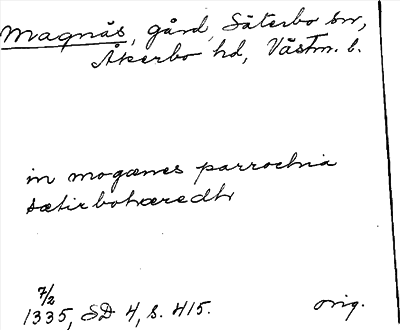 Magnäs, gård, Säterbo sn,
Åkerbo hd, Västm. l.
in mogænes parrochia
sætirbohæredh
7/2
1335, SD 4, s. 415. orig.